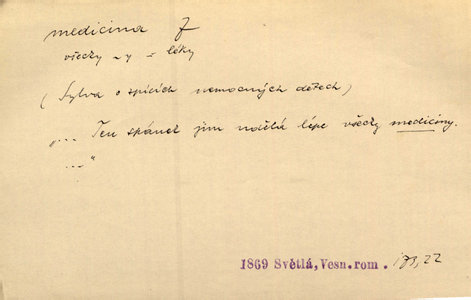 medicina f
všecky ~y = léky
(Sylva o spících nemocných dětech)
„... Ten spánek jim udělá lépe všecky medicíny.
..."
1869 Světlá, Vesn.rom. 173, 22